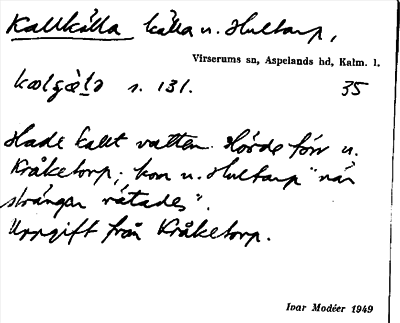 Kallkälla källa u. Hultarp,
Virserums sn, Aspelands hd, Kalm. l.
s. 131. 35
Hade kallt vatten. Hörde förr u.
Kråketorp; kom u. Hultarp "när
strängen rätades".
Uppgift från Kråketorp.
Ivar Modéer 1949